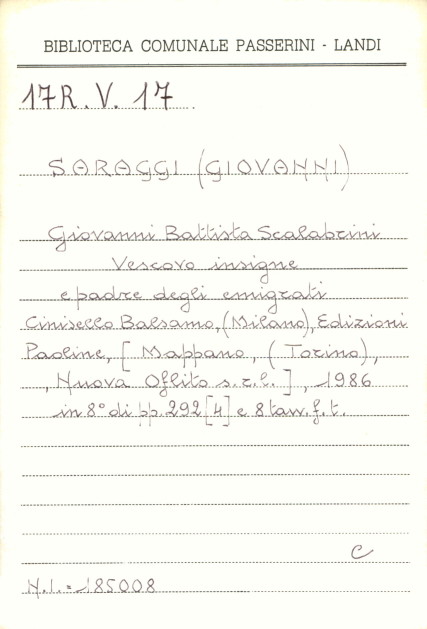 BIBLIOTECA COMUNALE PASSERINI - LANDI
17R. V. 17
SARAGGI (GIOVANNI)
Giovanni Battista Scalabrini
Vescovo insigne
e padre degli emigrati
Cinisello Balsamo, (Milano), Edizioni
Paoline, [Mappano, (Torino),
, Nuova Oflito s.r.l.], 1986
in 8° di pp. 292 [4] e 8 tavv. f. t.
C
N.I. = 185008